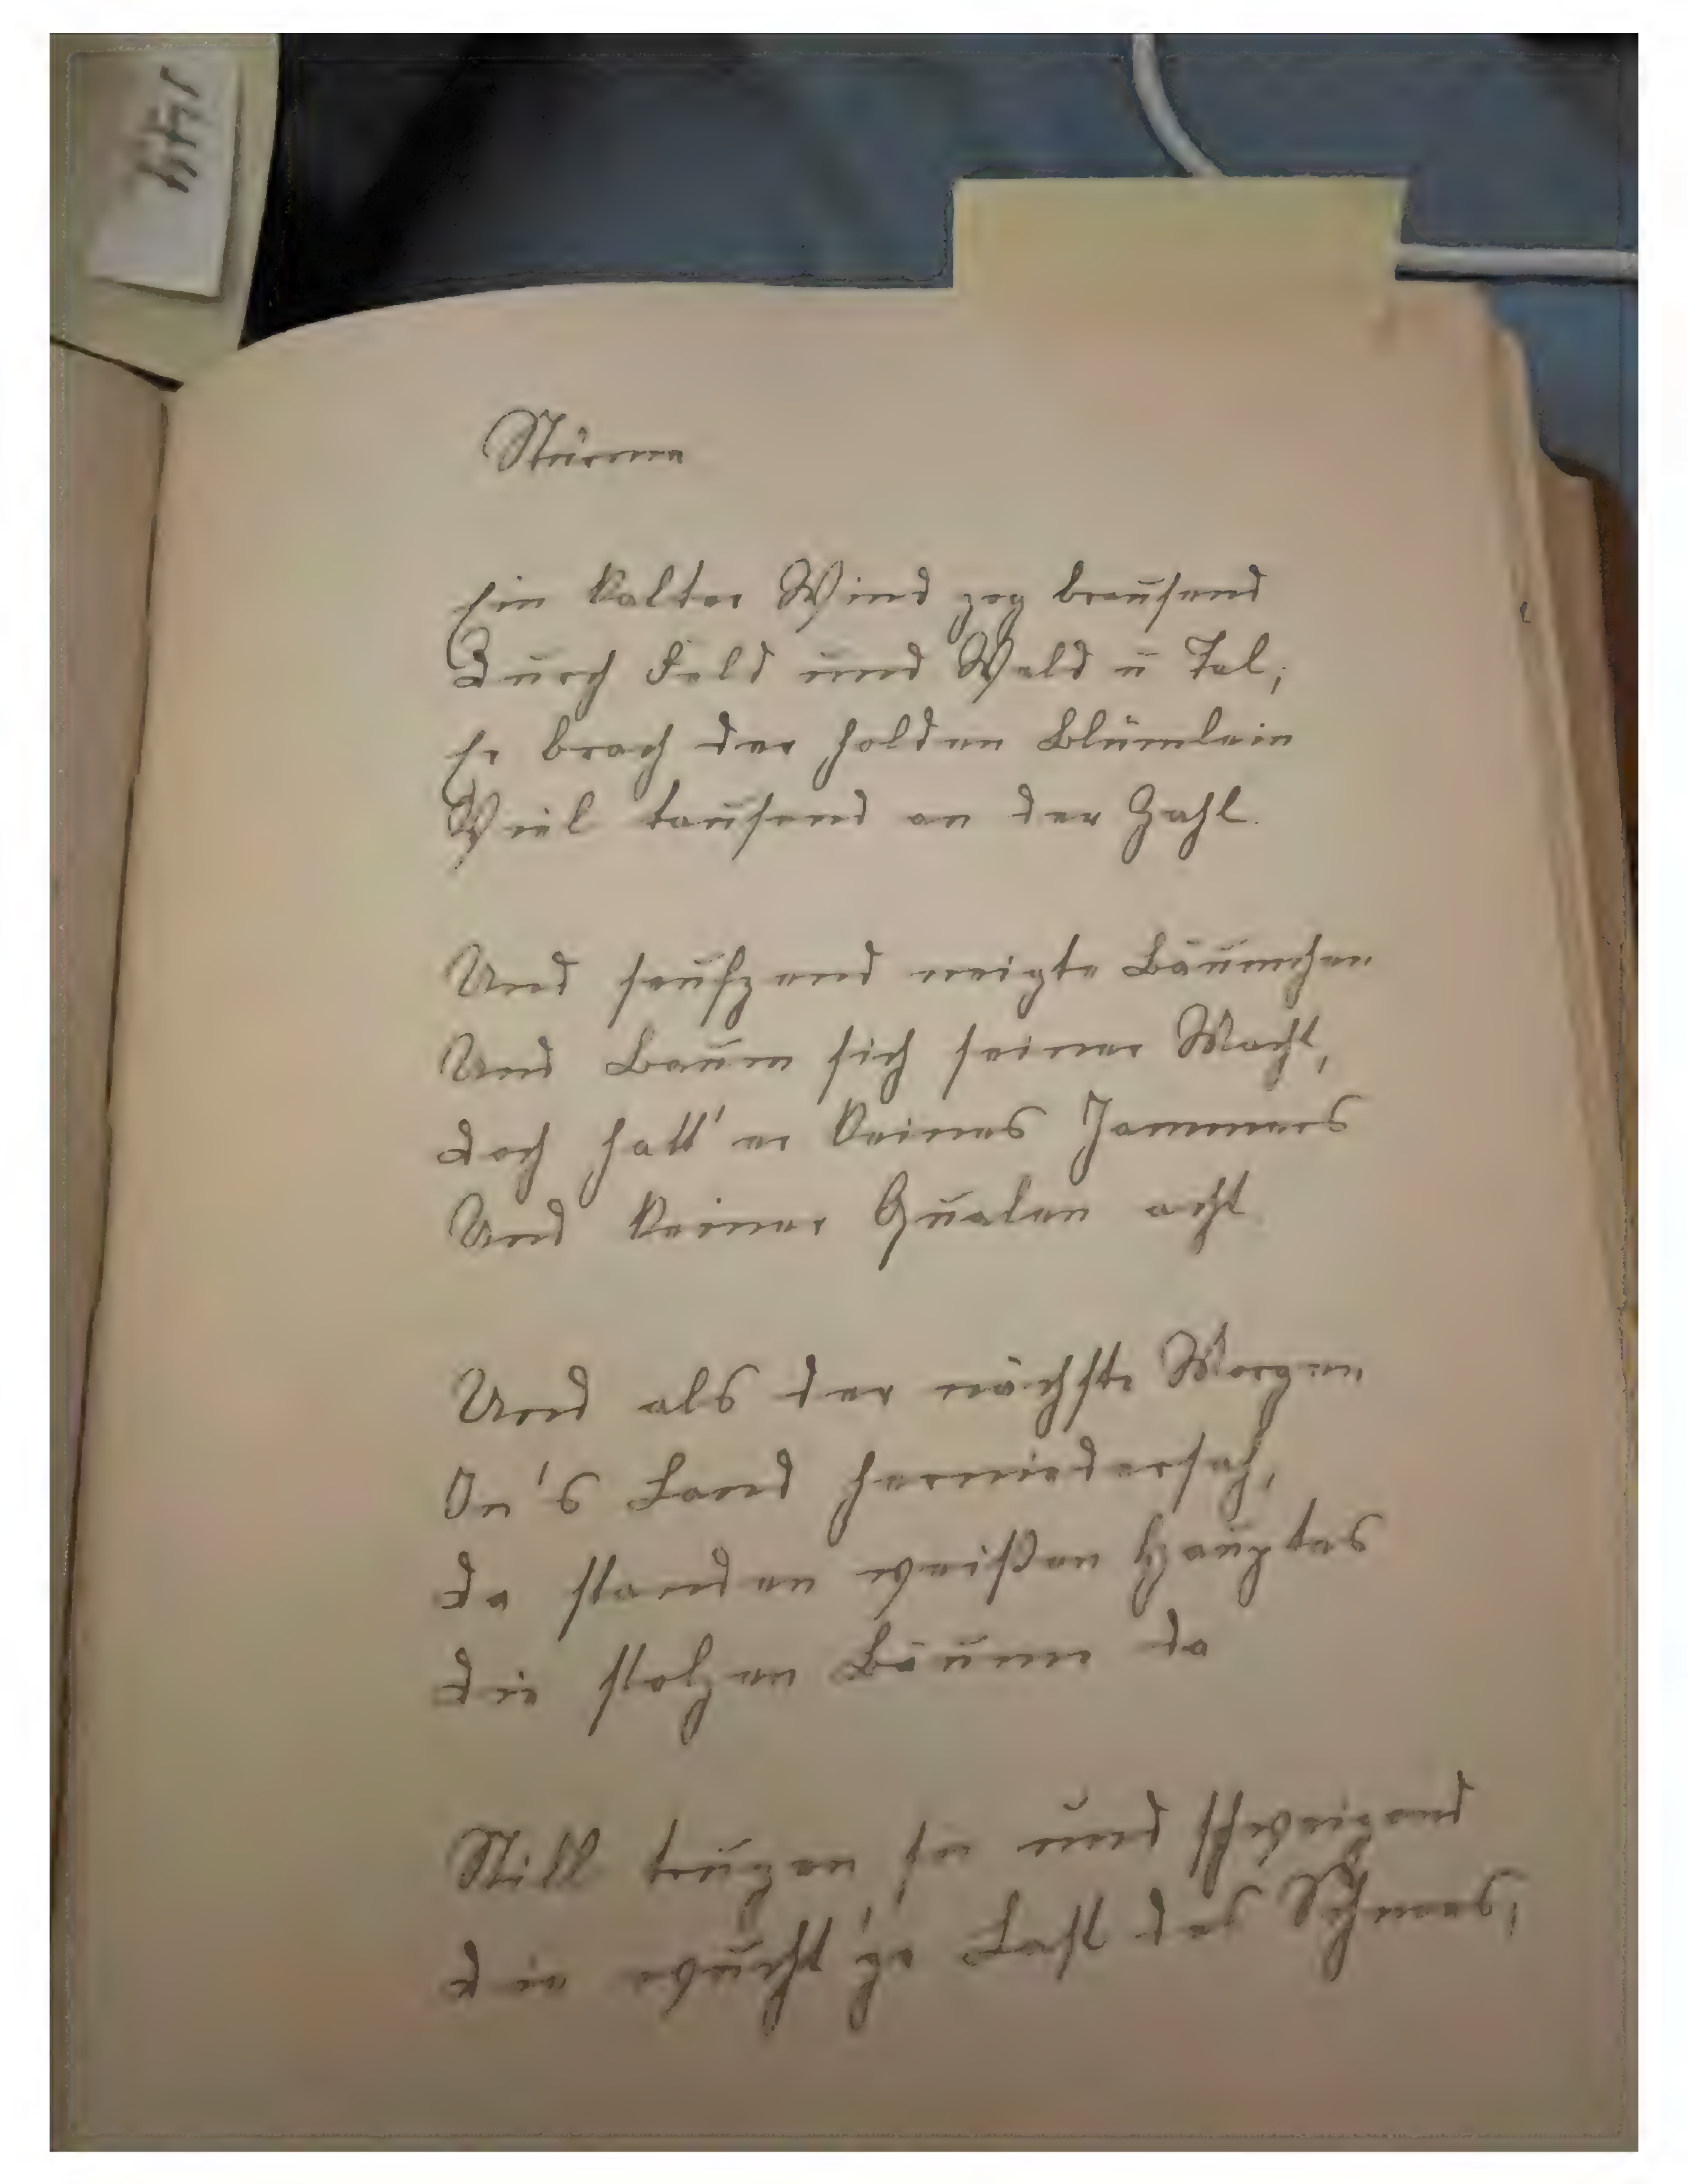 Stürme
Ein kalter Wind zog brausend
Durch Feld und Wald u Tal,
Er brach der holden Blümlein
Viel tausend an der Zahl.
Und seufzend neigte Bäumchen
Und Baum sich seiner Macht,
Doch hatt' er keines Jammers
Und keiner Qualen acht
Und als der nächste Morgen
In's Land herniedersah,
Da standen weißen Hauptes
Die stolzen Bäume da
Still trugen sie und schweigend
Die wucht'ge Last des Schnees,